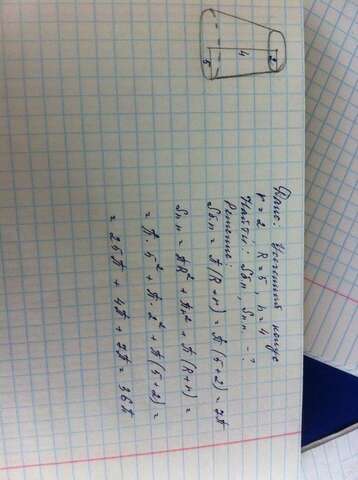 Дано: Усеченный конус
r = 2 R = 5 h = 4
Найти: Sбп, Sпп - ?
Решение:
Sбп = π(R+r) = π(5+2) = 7π
Sпп = πR² + πr² + π(R+r) =
= π·5² + π·2² + π(5+2) =
= 25π + 4π + 7π = 36π
2
4
5